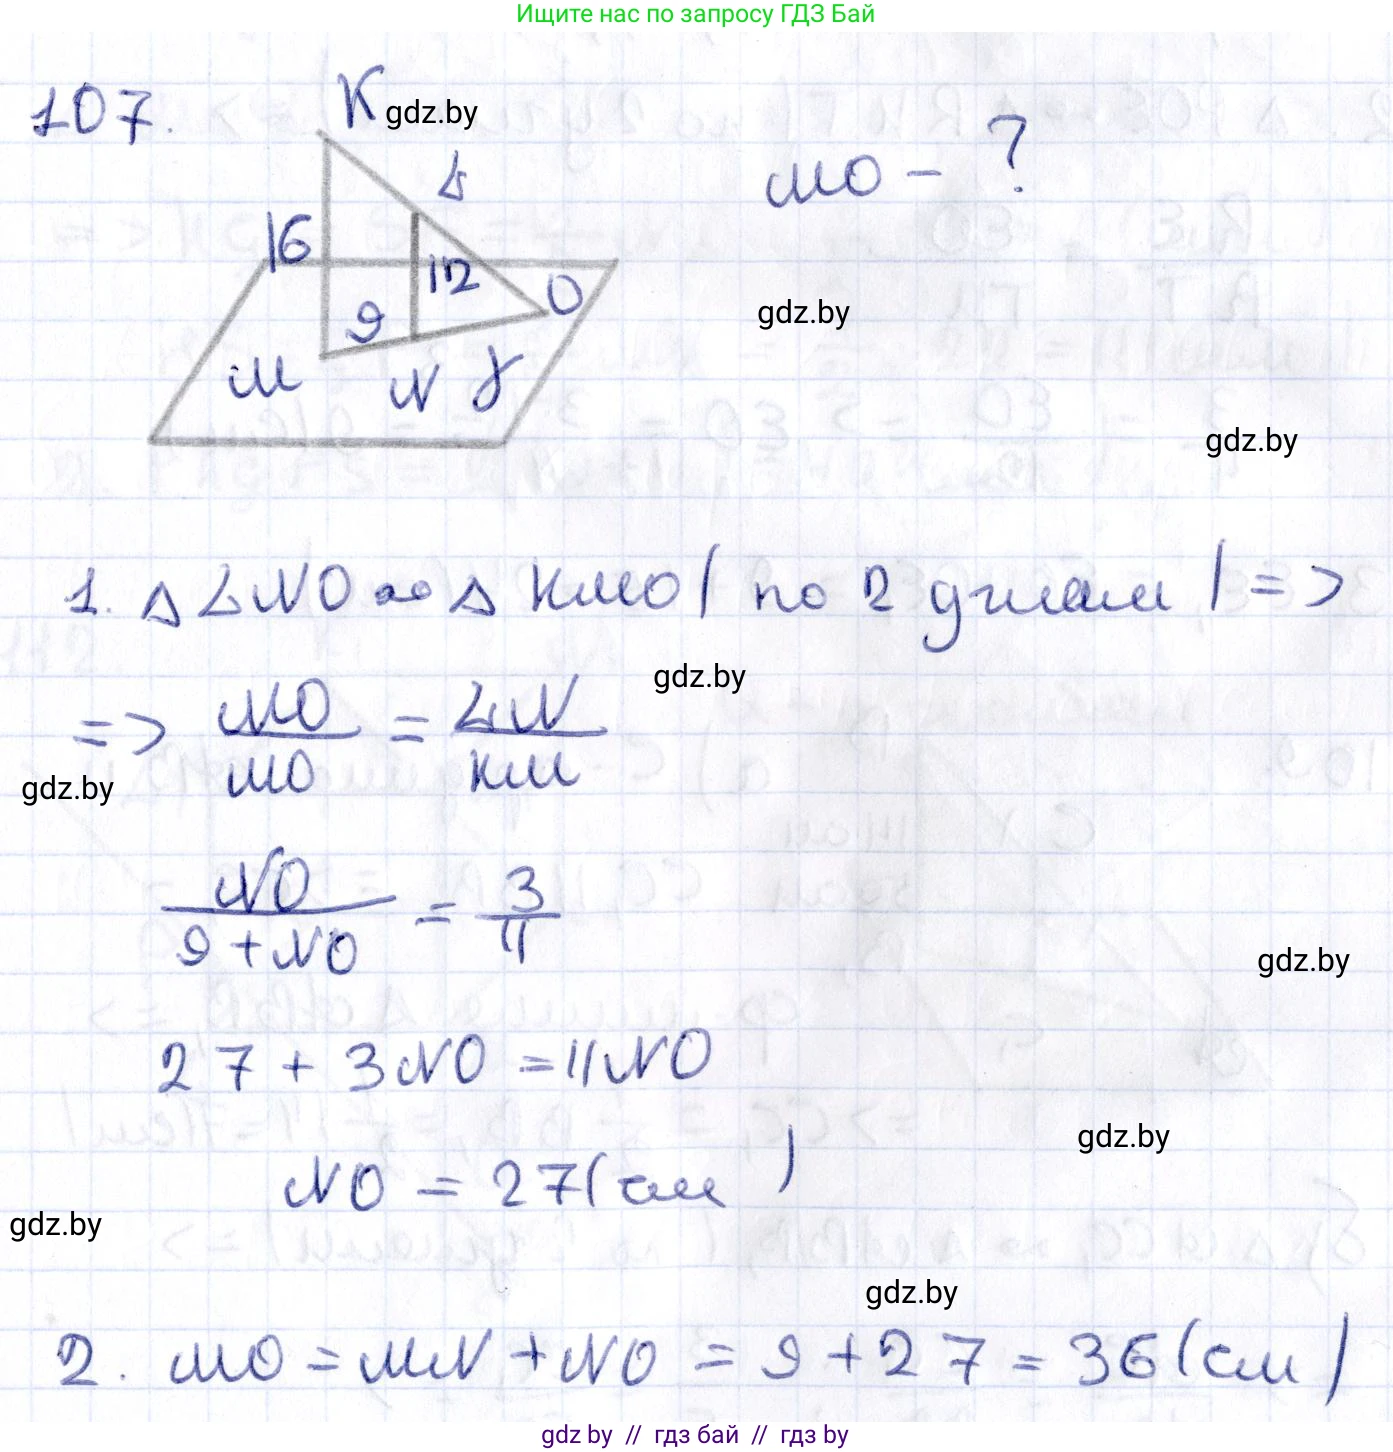 Ищите нас по запросу ГДЗ Бай
107.
K
gdz.by
L
MO - ?
16
12
O
gdz.by
9
M
N
γ
gdz.by
1. Δ LNO ∾ Δ KMO ( по 2 углам ) =>
gdz.by
=> NO/MO = LN/KM
gdz.by
NO/9+NO = 3/4
gdz.by
27 + 3NO = 4NO
gdz.by
NO = 27 (см)
gdz.by
gdz.by
2. MO = MN + NO = 9 + 27 = 36 (см)
gdz.by // гдз бай // гдз by